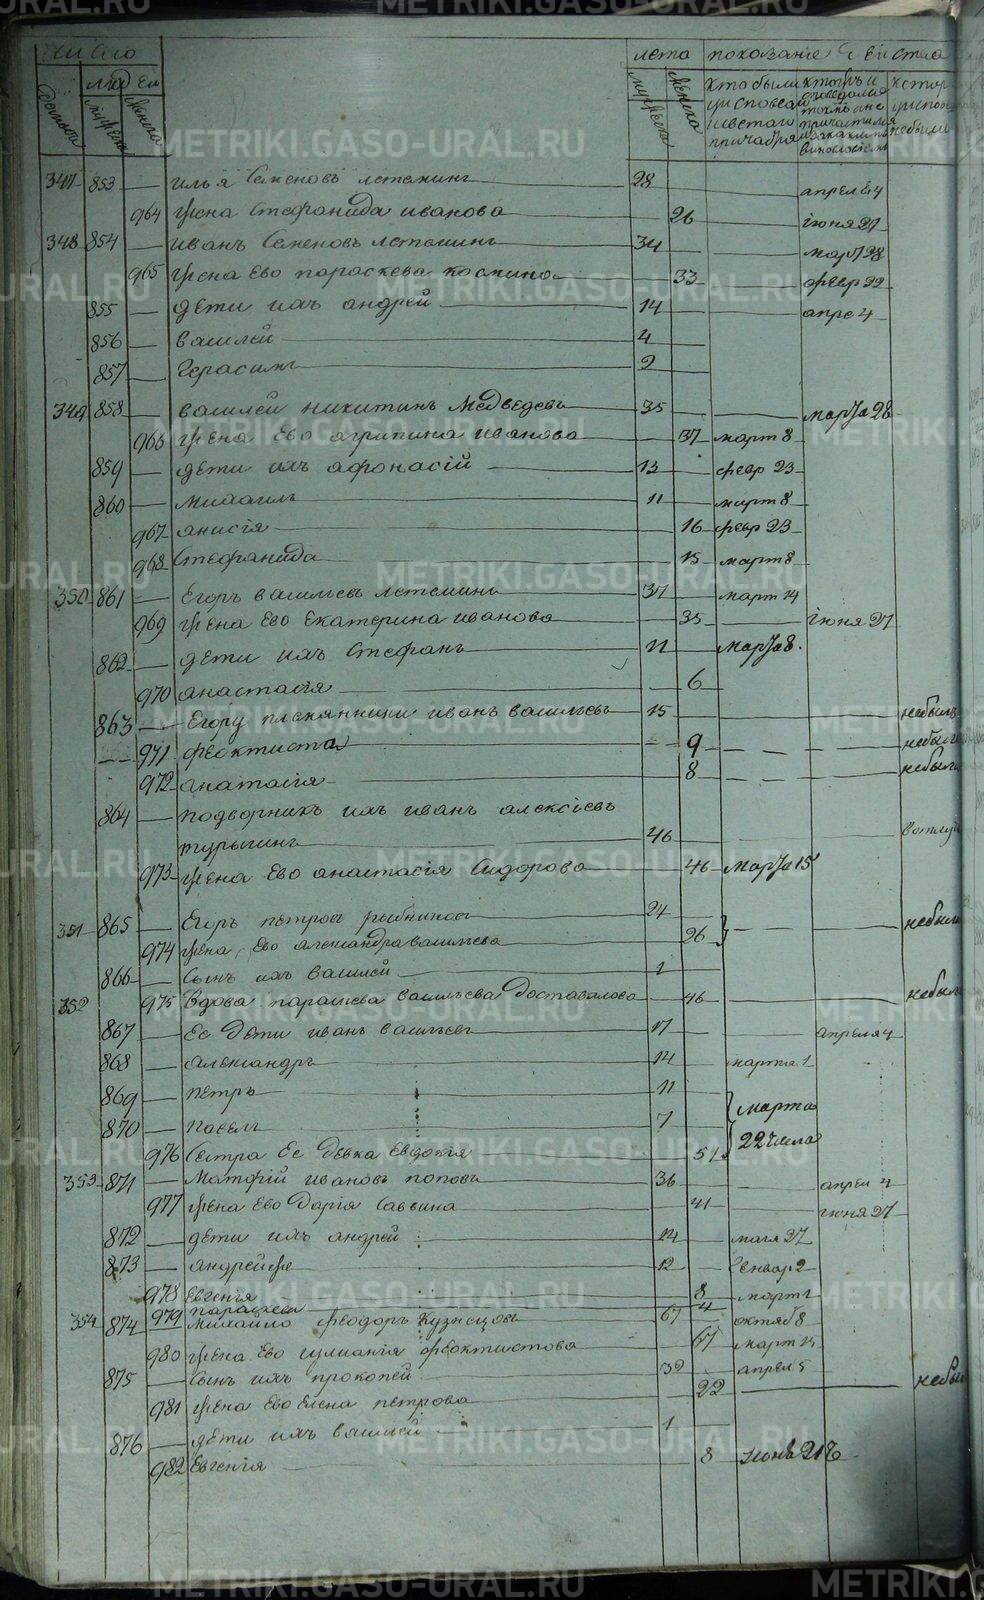 число лета показание действа
людей
дворовъ мужеска женска мужеска женска
кто были у исповеди и святаго причастия
347 853 — илья Семеновъ летеминъ 28 апреля 4
964 жена Стефанида иванова 26 июня 27
348 854 — иванъ Семеновъ летеминъ 34 март 28
965 жена Ево параскева космина 33 февр 22
855 — дети ихъ андрей 14 апре 4
856 — василей 4
857 — Герасимъ 2
349 858 — василей никитинъ Медведевъ 35 марта 28
966 жена Ево агрипина иванова 37 март 8
859 — дети ихъ афонасiй 13 февр 23
860 — михаилъ 11 март 8
967 анисiя 16 февр 23
968 Стефанида 15 март 8
350 861 — Егоръ васильевъ летеминъ 37 март 14
969 жена Ево Екатерина иванова 35 iюня 27
862 — дети ихъ Стефанъ 11 марта 8.
970 анастасiя 6
863 — Егору племянники иванъ васильевъ 15 небылъ
971 феоктиста 9 небыла
972 анатасiя 8 небыла
864 — подворникъ ихъ иванъ алексiевъ
турыгинъ 46
973 жена Ево анастасiя Сидорова 46 марта 15
351 865 — Егоръ петровъ 24 небыли
974 жена Ево александра васильева 26
866 — Сынъ ихъ василей 1
352 975 вдова параскева васильева Доставалова 46 небыла
867 — Ее Дети иванъ васильевъ 17 апреля 4
868 — александръ 14 марта 1
869 — петръ 11 марта
870 — павелъ 7 22 числа
976 Сестра Ее Девка Евдокiя 51
353 871 — Матфiй ивановъ поповъ 36 апрел 4
977 жена Ево Дарiя Саввина 41 iюня 27
872 — дети ихъ андрей 14 мая 27
873 — андрей же 12 Генвар 2
978 Евгенiя 8 март
979 параскева 4
354 874 — михайло феодоръ Кузнецовъ 67 октяб 8
980 жена Ево иулианiя феоктистова 67 март
875 — Сынъ ихъ прокопей 32 апрел
981 жена Ево Елена петрова 22 небыла
876 — дети ихъ василей 1
982 Евгенiя 8